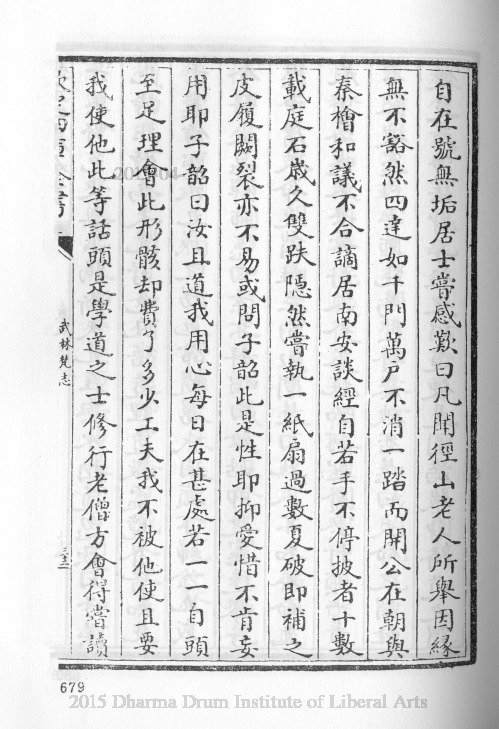 自在號無垢居士嘗感歎曰凡聞徑山老人所舉因緣
無不豁然四達如千門萬戶不消一踏而開公在朝與
秦檜和議不合謫居南安談經自若手不停披者十數
載庭石歲久雙趺隱然嘗執一紙扇過數夏破即補之
皮履闕裂亦不易或問子韶此是性耶抑愛惜不肯妄
用耶子韶曰汝且道我用心每日在甚處若一一自頭
至足理會此形骸却費了多少工夫我不被他使且要
我使他此等話頭是學道之士修行老僧方會得嘗讀
武林梵志
三十二
679
2015 Dharma Drum Institute of Liberal Arts